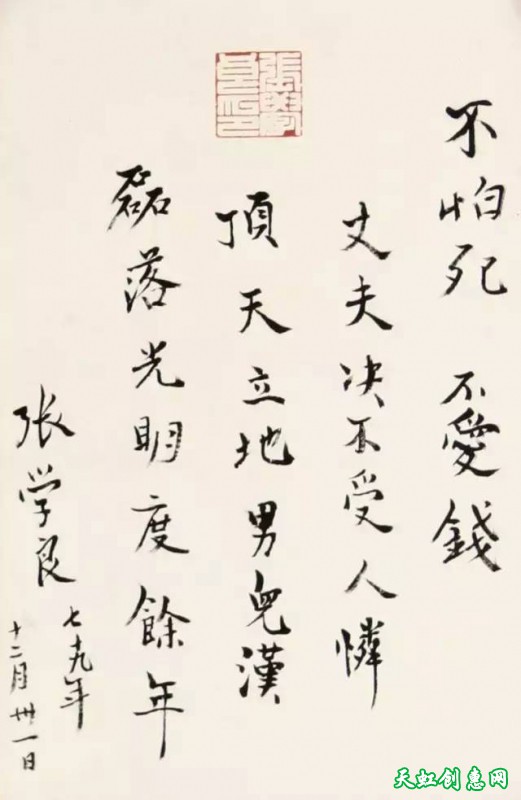 張學良印
不怕死 不愛錢
丈夫决不受人憐
頂天立地男兒漢
磊落光明度餘年
张学良 七十九年
十二月卅一日
天虹创惠网